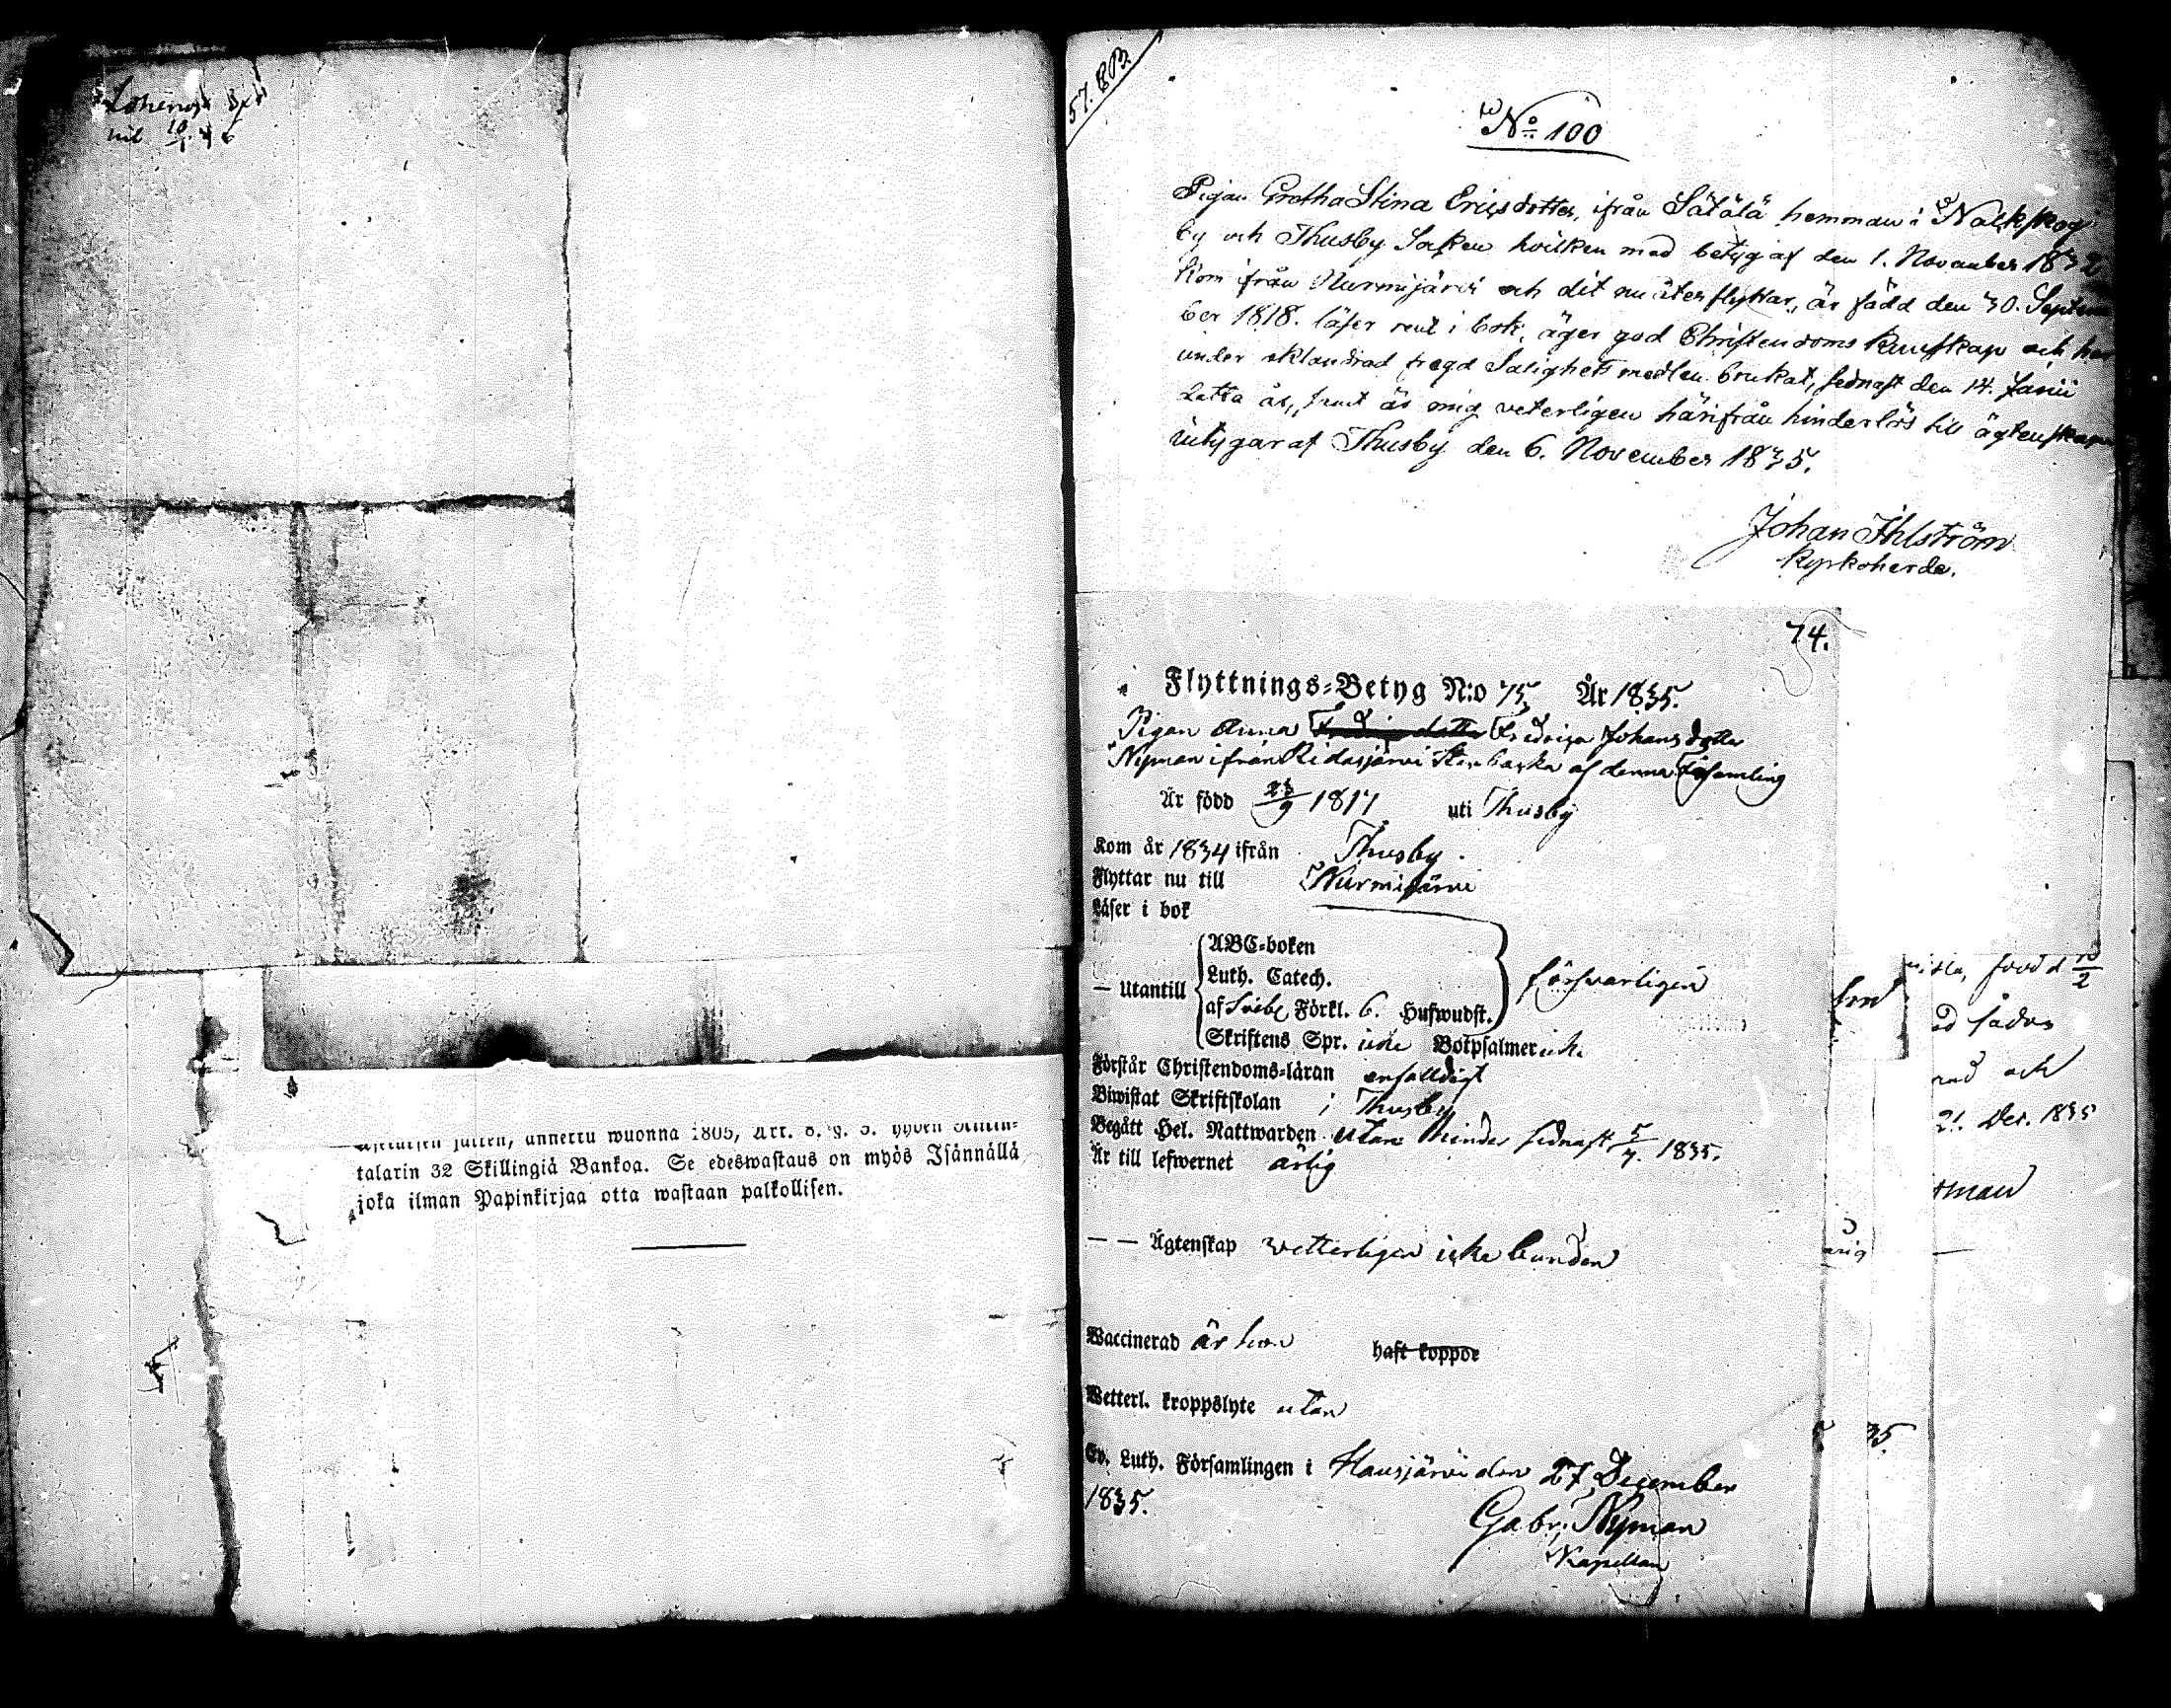 57. 803.
No 100
Pigan Gretha Stina Ericsdotter, ifrån Sätälä hemman i Nackskog
by och Thusby Socken hvilken med betyg af den 1. November 1832
kom ifrån Nurmijärvi och dit nu återflyttar, är född den 30. Septem
ber 1818. läser rent i bok, äger god Christendoms kunskap och har
under oklandrad fregd Salighetsmedlen brukat, sednast den 14. Junii
detta år, samt är mig veterligen härifrån hinderlös till ägtenskap
intygar af Thusby den 6. November 1835.
Johan Ihlström
Kyrkoherde.
74.
Flyttnings-Betyg N:o 75 År 1835.
Pigan Anna Fredricsdotter Fredrica Johansdotter
Nyman ifrån Ridasjärvi Stenbacka af denna Församling
Är född 23/9 1817 uti Thusby
Kom år 1834 ifrån Thusby.
Flyttar nu till Nurmijärvi
Läser i bok
ABC-boken
Luth. Catech.
— Utantill försvarligen
af Svebel. Förkl. 6. Hufwudst.
Skriftens Spr. icke Botpsalmer icke
Förstår Christendoms-läran enfalldigt
Biwistat Skriftskolan i Thusby
Begått Hel. Nattwarden utan hinder sednast 5/7. 1835.
Är till lefwernet ärlig
— — Ägtenskap vetterligen icke bunden
Waccinerad är hon haft koppor
Wetterl. kroppslyte utan
Ev. Luth. Församlingen i Hausjärvi den 27 December
1835.
Gabr. Nyman
Kapellan
talarin 32 Skillingiä Bankoa. Se edeswastaus on myös Isännällä
joka ilman Papinkirjaa otta wastaan palkollisen.
född 10/2
och
21. Dec. 1835
35.